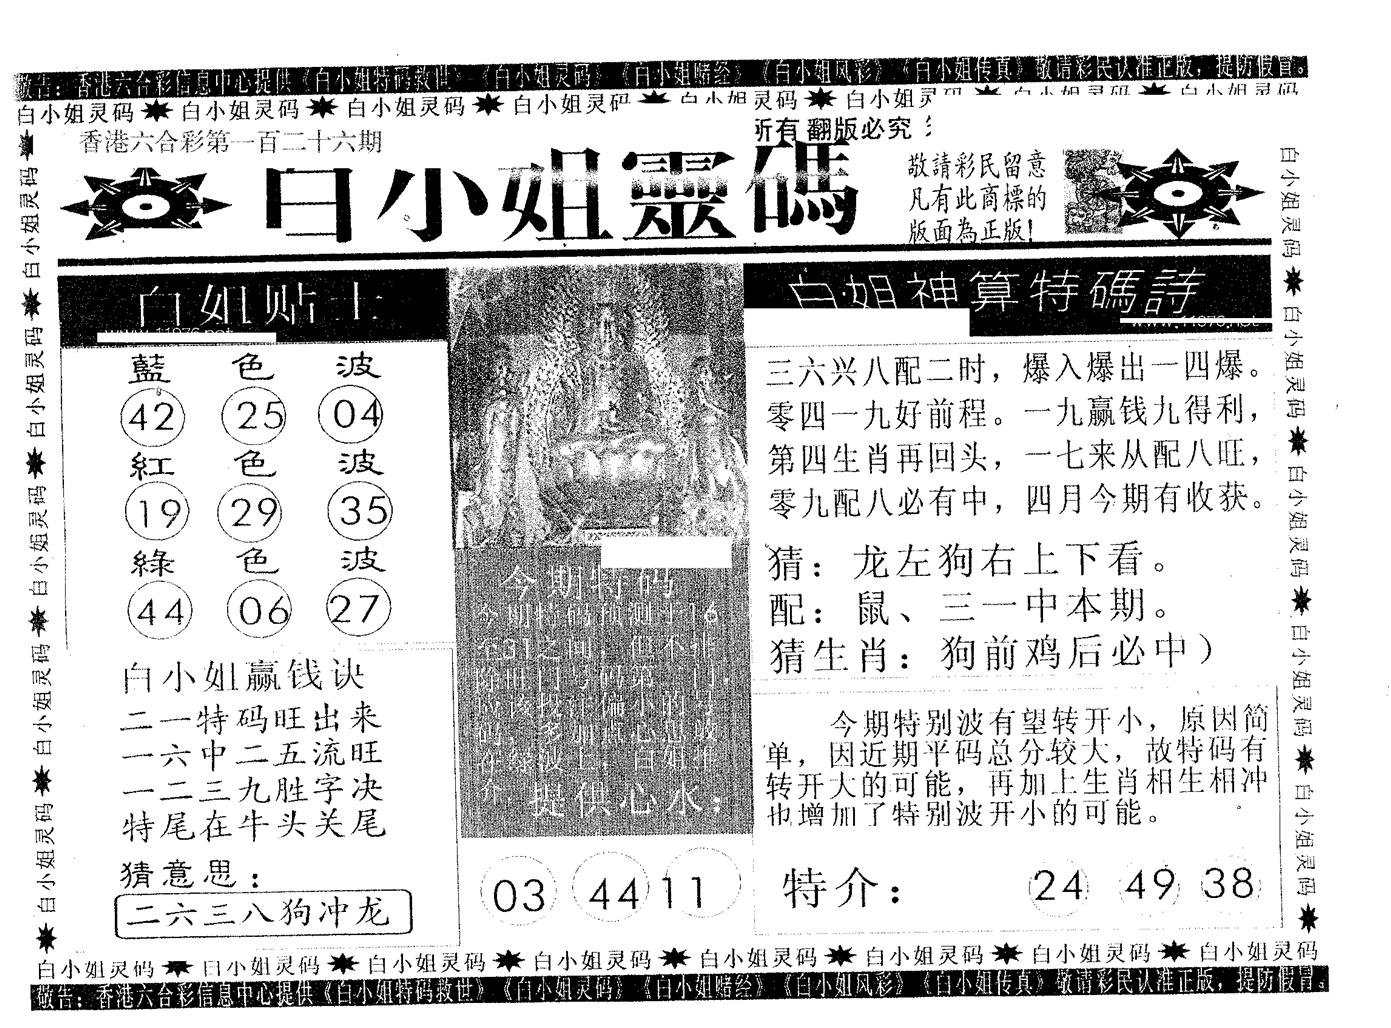 敬告：香港六合彩信息中心提供《白小姐特码救世》《白小姐灵码》《白小姐赌经》《白小姐风彩》《白小姐传真》敬请彩民认准正版，提防假冒。
白小姐灵码 白小姐灵码 白小姐灵码 白小姐灵码 白小姐灵码 白小姐灵码 白小姐灵码 白小姐灵码
香港六合彩第一百二十六期
所有 翻版必究
白小姐靈碼
敬請彩民留意
凡有此商標的
版面為正版！
白小姐灵码 白小姐灵码 白小姐灵码 白小姐灵码 白小姐灵码
白姐贴士
www.11876.net
藍 色 波
42 25 04
紅 色 波
19 29 35
綠 色 波
44 06 27
白小姐赢钱诀
二一特码旺出来
一六中二五流旺
一二三九胜字决
特尾在牛头关尾
猜意思：
二六三八狗冲龙
今期特码
今期特码预测于16
在31之间，但不排
除
码 多加点心思或
许绿波上，白姐推
介
提供心水：
03 44 11
白姐神算特碼詩
www.11876.net
三六兴八配二时，爆入爆出一四爆。
零四一九好前程。一九赢钱九得利，
第四生肖再回头，一七来从配八旺，
零九配八必有中，四月今期有收获。
猜：龙左狗右上下看。
配：鼠、三一中本期。
猜生肖：狗前鸡后必中）
今期特别波有望转开小，原因简
单，因近期平码总分较大，故特码有
转开大的可能，再加上生肖相生相冲
也增加了特别波开小的可能。
特介： 24 49 38
白小姐灵码 白小姐灵码 白小姐灵码 白小姐灵码 白小姐灵码
白小姐灵码 白小姐灵码 白小姐灵码 白小姐灵码 白小姐灵码 白小姐灵码 白小姐灵码 白小姐灵码
敬告：香港六合彩信息中心提供《白小姐特码救世》《白小姐灵码》《白小姐赌经》《白小姐风彩》《白小姐传真》敬请彩民认准正版，提防假冒。